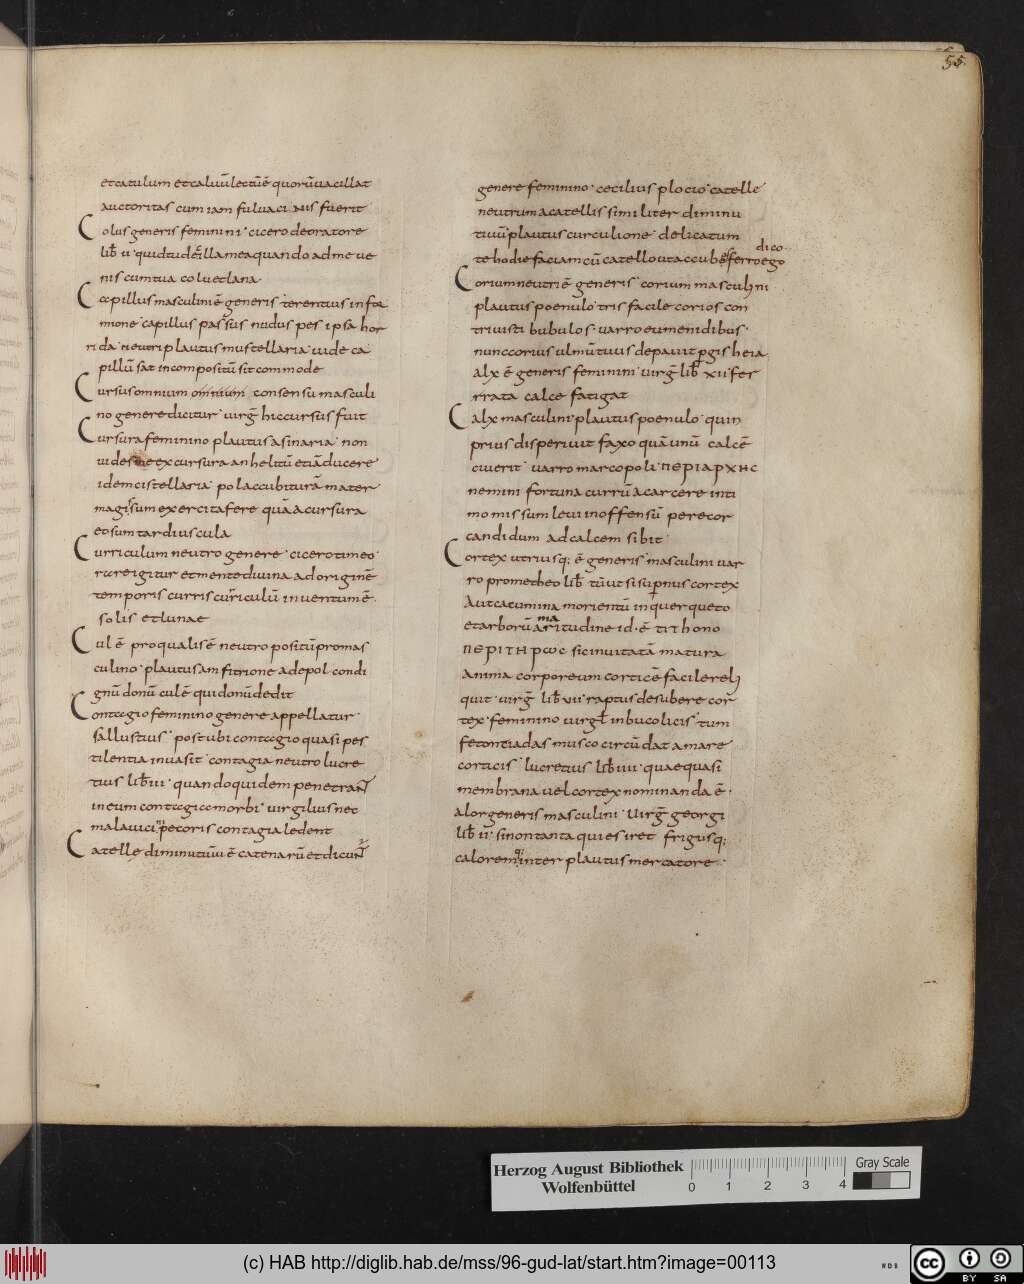 55.
et catulum et calvū lectū ē quorū vacillat
auctoritas cum iam fulva ci nis fuerit
Colus generis feminini · cicero de oratore
lib̄ ii · quid tu dē illa mea quando ad me ve
nis cum tua colu et lana
Capillus masculini ē generis · terentius in for
mione · capillus passus nudus pes ipsa hor
rida · neutri plautus mustellaria · vide ca
pillū sat in compositū sit commode
Cursus omnium omnium consensu masculi
no genere dicitur · virḡ hic cursus fuit
Cursura feminino plautus asinaria · non
vides me ex cursura anhelitū etiā ducere
idem cistellaria · pol accubiturā mater
magis sum exercita fere quā a cursura
eo sum tardiuscula
Curriculum neutro genere · cicero timeo ·
ra re igitur et mente divina ad originē
temporis curris curriculū inventum ē ·
solis et lunae
Cul ē pro qualis ē neutro positū promas
culino · plautus amfitrione adepol condi
gnū donū cul ē qui donū dedit
Contagio feminino genere appellatur ·
sallustius · post ubi contagio quasi pes
tilentia invasit · contagia neutro lucre
tius lib̄ iii · quando quidem penetrant
in eum contagia e morbi · virgilius nec
mala vicini pecoris contagia ledent
Catelle diminutivū ē catenarū et dicunt
genere feminino · cecilius plocio · catelle
neutrum a catellis similiter diminu
tivū plautus curculione · delicatum
dico
te hodie faciam cū catello ut accubes ferro ego
Corium neutri ē generis · corium masculini
plautus poenulo · tris facile corios con
trivisti bubulos · varro eumenidibus ·
nunc corius ulmū tuus depavit pgis heia
alx ē generis feminini · virḡ lib̄ xii · fer
rrata calce fatigat
Calx masculini · plautus poenulo · quin
prius disperivit faxo quā unū calcē
civerit · varro marcopoli · ΠΕΡΙΑΡΧΗC
nemini fortuna currū a carcere inti
mo missum levi inoffensū per ecor
candidum ad calcem sibit
Cortex utriusq; ē generis masculini var
ro prometheo lib̄ · tū ut si supnus cortex
Aut cacumina morientū in querqueto
ma
et arborū aritudine id · ē · tithono
ΠΕΡΙΓΗΡѠC sic invitatā matura
Anima corporeum corticē facile reli
quit · virḡ lib̄ vii · raptus de subere cor
tex · feminino virgl̄ in bucolicis · tum
fetontiadas musco circū dat amare
corticis · lucretius lib̄ iiii · quae quasi
membrana vel cortex nominanda ē ·
alor generis masculini · virḡ georgi
lib̄ ii · si non tanta quies iret frigusq;
calorem q; inter plautus mercatore ·
Herzog August Bibliothek
Wolfenbüttel
0 1 2 3 4
Gray Scale
(c) HAB http://diglib.hab.de/mss/96-gud-lat/start.htm?image=00113
WDB
cc BY SA